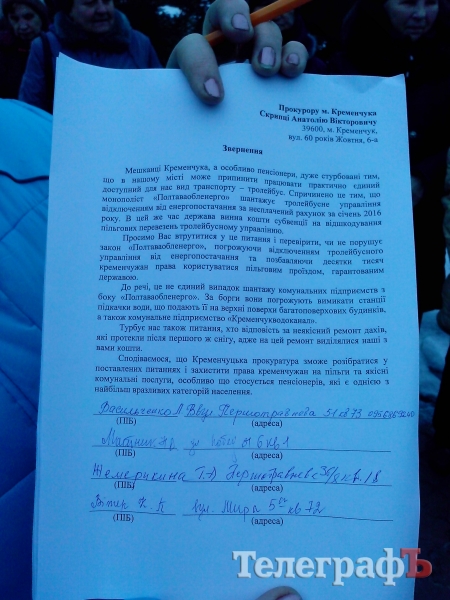 Прокурору м. Кременчука
Скрипці Анатолію Вікторовичу
39600, м. Кременчук,
вул. 60 років Жовтня, 6-а
Звернення
Мешканці Кременчука, а особливо пенсіонери, дуже стурбовані тим,
що в нашому місті може припинити працювати практично єдиний
доступний для нас вид транспорту – тролейбус. Спричинено це тим, що
монополіст «Полтаваобленерго» шантажує тролейбусне управління
відключенням від енергопостачання за несплачений рахунок за січень 2016
року. В цей же час держава винна кошти субвенції на відшкодування
пільгових перевезень тролейбусному управлінню.
Просимо Вас втрутитися у це питання і перевірити, чи не порушує
закон «Полтаваобленерго», погрожуючи відключенням тролейбусного
управління від енергопостачання та позбавляючи десятки тисяч
кременчужан права користуватися пільговим проїздом, гарантованим
державою.
До речі, це не єдиний випадок шантажу комунальних підприємств з
боку «Полтаваобленерго». За борги вони погрожують вимикати станції
підкачки води, що подають її на верхні поверхи багатоповерхових будинків,
а також комунальне підприємство «Кременчукводоканал».
Турбує нас також питання, хто відповість за неякісний ремонт дахів,
які протекли після першого ж снігу, адже на цей ремонт виділялися наші з
вами кошти.
Сподіваємося, що Кременчуцька прокуратура зможе розібратися у
поставлених питаннях і захистити права кременчужан на пільги та якісні
комунальні послуги, особливо що стосується пенсіонерів, які є однією з
найбільш вразливих категорій населення.
Васильченко Л В вул Першотравнева 51 кв 73
(ПІБ) (адреса)
6 кв 1
(ПІБ) (адреса)
Жемерикина Т.Д
(ПІБ) (адреса)
вул. Мира 5 кв 72
(ПІБ) (адреса)
ТелеграфЪ